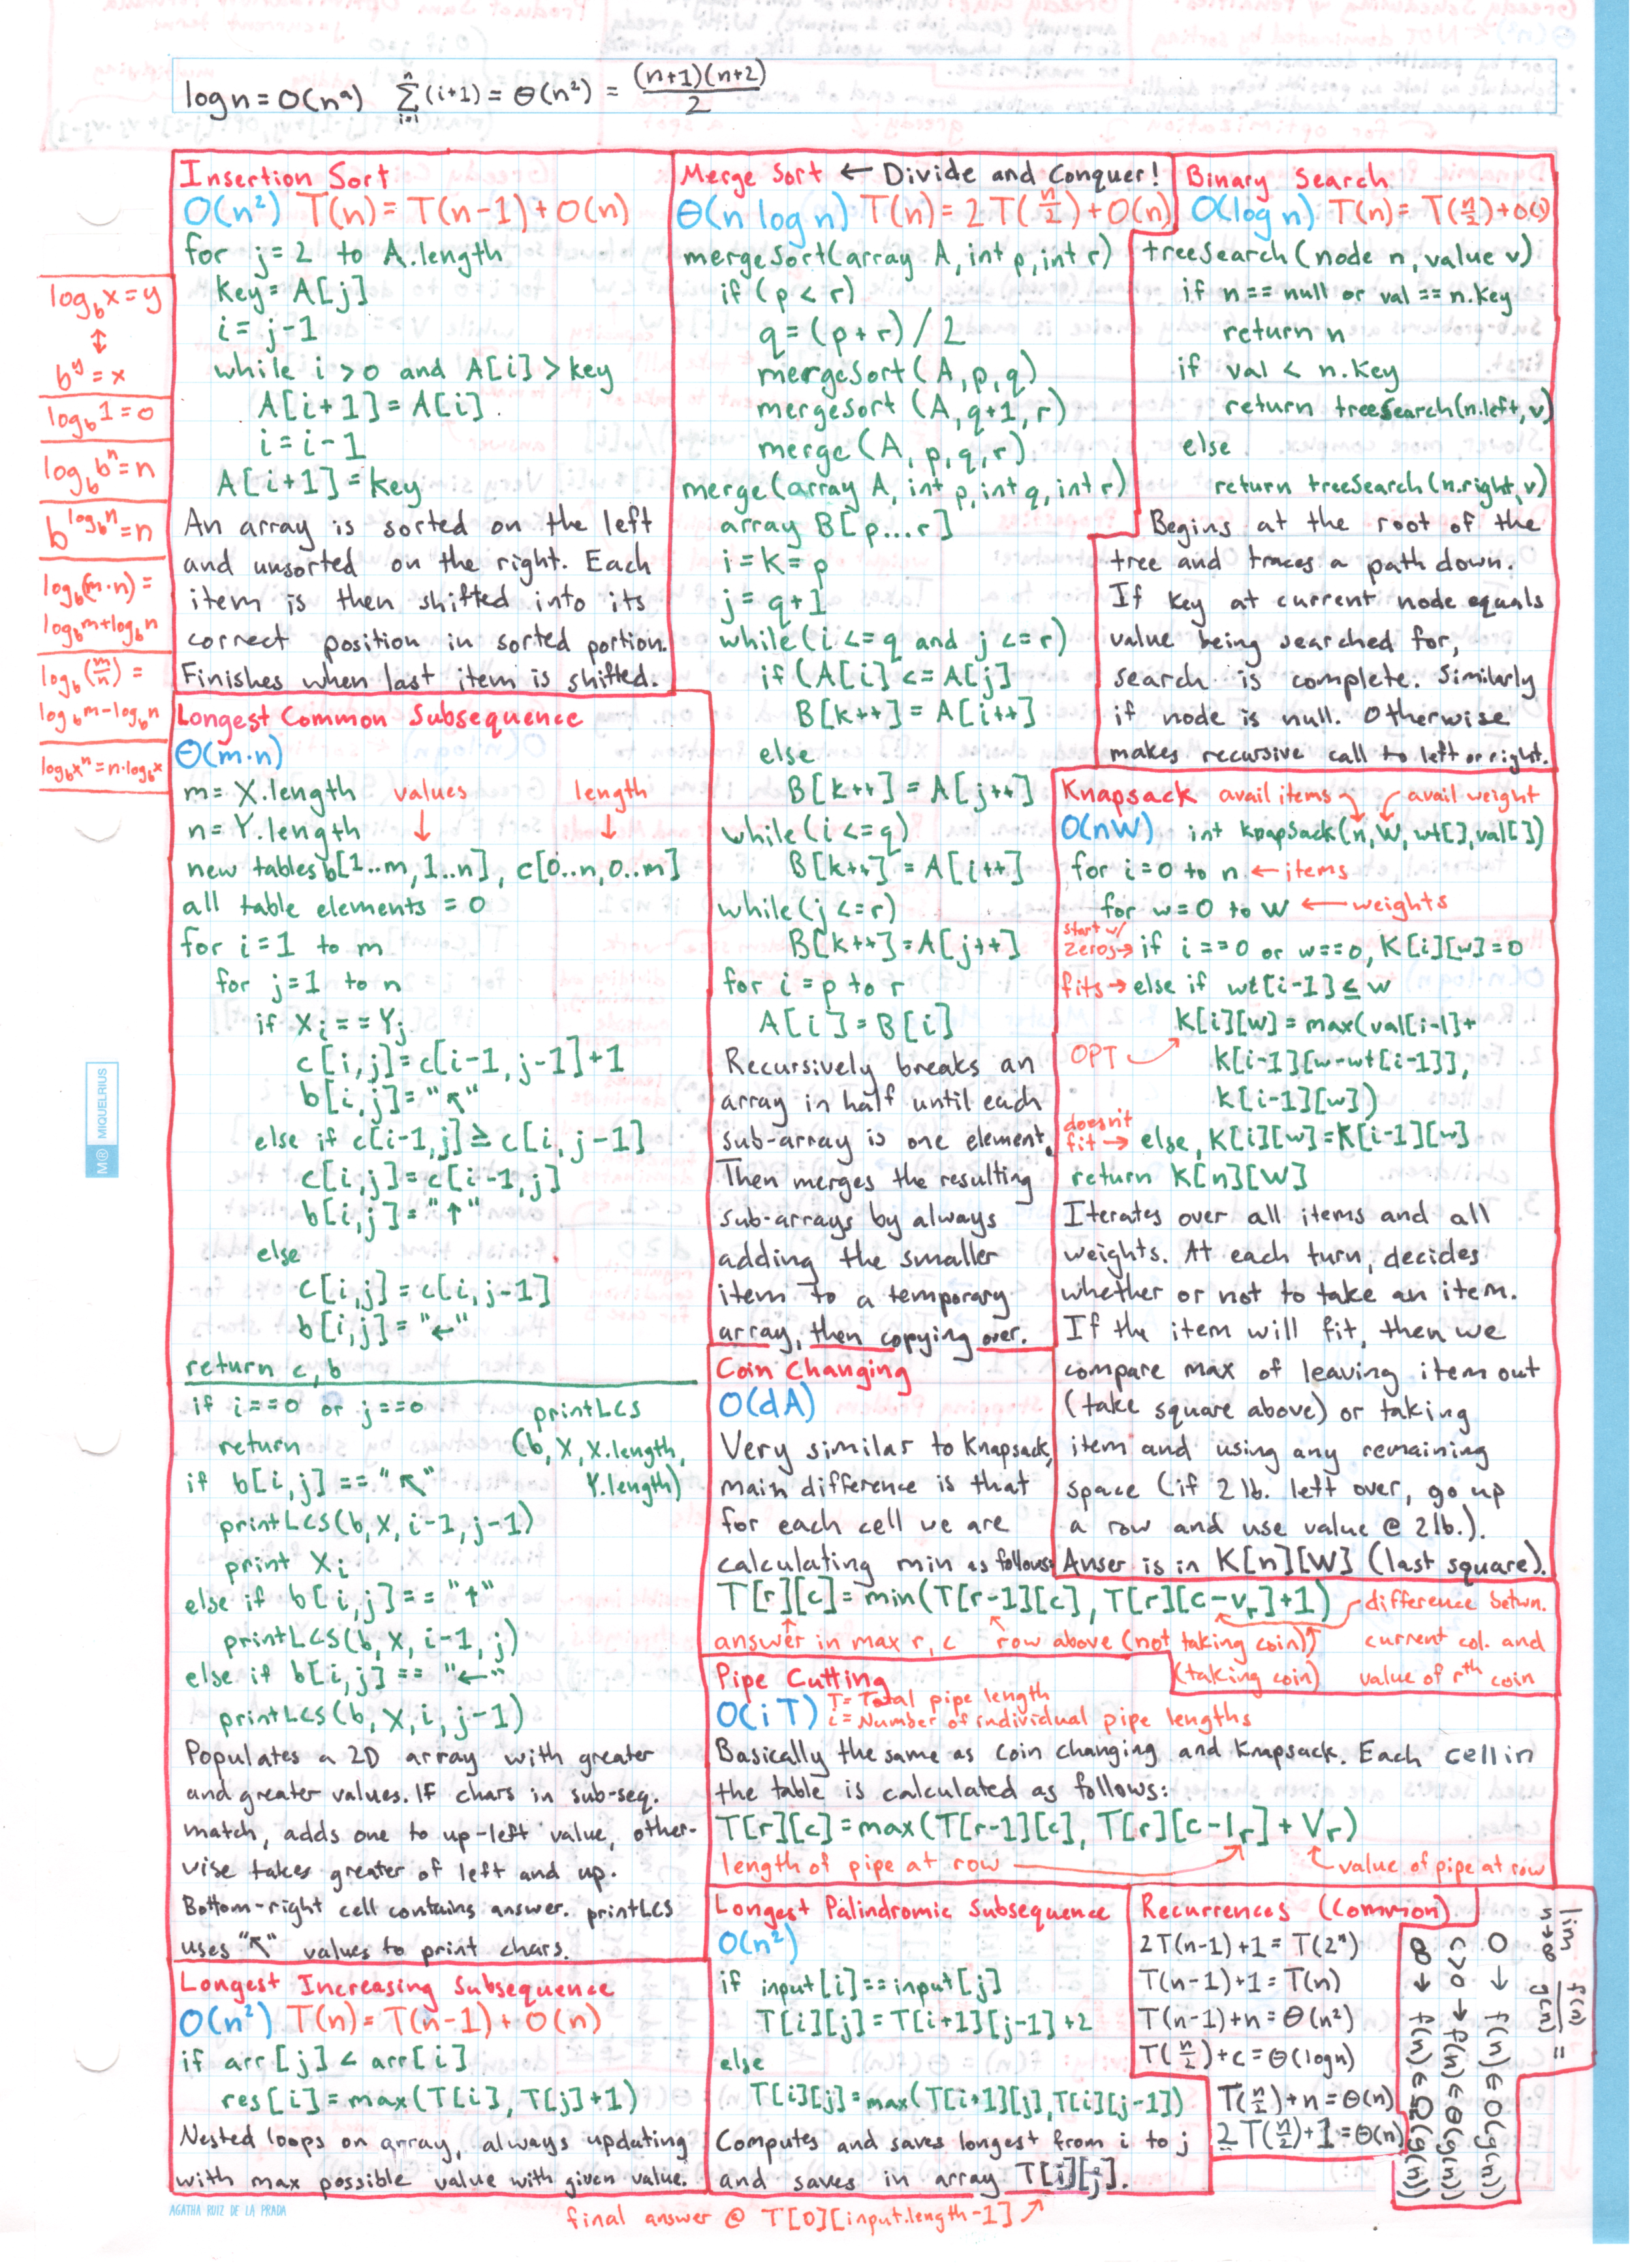 log n = O(nᵃ)   Σ_{i=1}^{n} (i+1) = Θ(n²) = (n+1)(n+2)/2
log_b x = y
↕
b^y = x
log_b 1 = 0
log_b b^n = n
b^{log_b n} = n
log_b(m·n) =
log_b m + log_b n
log_b(m/n) =
log_b m − log_b n
log_b x^n = n·log_b x
Insertion Sort
O(n²) T(n) = T(n-1) + O(n)
for j=2 to A.length
key = A[j]
i = j-1
while i > 0 and A[i] > key
A[i+1] = A[i]
i = i-1
A[i+1] = key
An array is sorted on the left
and unsorted on the right. Each
item is then shifted into its
correct position in sorted portion.
Finishes when last item is shifted.
Longest Common Subsequence
Θ(m·n)
m = X.length values length
n = Y.length ↓ ↓
new tables b[1..m, 1..n], c[0..n, 0..m]
all table elements = 0
for i=1 to m
for j=1 to n
if Xi == Yj
c[i,j] = c[i-1, j-1]+1
b[i,j] = "↖"
else if c[i-1,j] ≥ c[i, j-1]
c[i,j] = c[i-1,j]
b[i,j] = "↑"
else
c[i,j] = c[i, j-1]
b[i,j] = "←"
return c, b
if i==0 or j==0 printLCS
return (b, X, X.length,
if b[i,j] == "↖" Y.length)
printLCS(b, X, i-1, j-1)
print Xi
else if b[i,j] == "↑"
printLCS(b, X, i-1, j)
else if b[i,j] == "←"
printLCS(b, X, i, j-1)
Populates a 2D array with greater
and greater values. If chars in sub-seq.
match, adds one to up-left value, other-
wise takes greater of left and up.
Bottom-right cell contains answer. printLCS
uses "↖" values to print chars.
Longest Increasing Subsequence
O(n²) T(n) = T(n-1) + O(n)
if arr[j] < arr[i]
res[i] = max(T[i], T[j]+1)
Nested loops on array, always updating
with max possible value with given value.
Merge Sort ← Divide and Conquer!
Θ(n log n) T(n) = 2T(n/2) + O(n)
mergeSort(array A, int p, int r)
if (p < r)
q = (p+r)/2
mergeSort(A, p, q)
mergeSort(A, q+1, r)
merge(A, p, q, r)
merge(array A, int p, int q, int r)
array B[p...r]
i = k = p
j = q+1
while(i <= q and j <= r)
if (A[i] <= A[j]
B[k++] = A[i++]
else
B[k++] = A[j++]
while(i <= q)
B[k++] = A[i++]
while(j <= r)
B[k++] = A[j++]
for i = p to r
A[i] = B[i]
Recursively breaks an
array in half until each
sub-array is one element.
Then merges the resulting
sub-arrays by always
adding the smaller
item to a temporary
array, then copying over.
Binary Search
O(log n) T(n) = T(n/2) + O(1)
treeSearch(node n, value v)
if n == null or val == n.key
return n
if val < n.key
return treeSearch(n.left, v)
else
return treeSearch(n.right, v)
Begins at the root of the
tree and traces a path down.
If key at current node equals
value being searched for,
search is complete. Similarly
if node is null. Otherwise
makes recursive call to left or right.
Knapsack avail items avail weight
O(nW) int knapSack(n, W, wt[], val[])
for i=0 to n ← items
for w=0 to W ← weights
start w/
zeros → if i == 0 or w==0, K[i][w]=0
fits → else if wt[i-1] ≤ w
K[i][w] = max(val[i-1]+
OPT K[i-1][w-wt[i-1]],
K[i-1][w])
doesn't
fit → else, K[i][w]=K[i-1][w]
return K[n][W]
Iterates over all items and all
weights. At each turn, decides
whether or not to take an item.
If the item will fit, then we
compare max of leaving item out
(take square above) or taking
item and using any remaining
space (if 2 lb. left over, go up
a row and use value @ 2lb.).
Anser is in K[n][W] (last square).
Coin Changing
O(dA)
Very similar to Knapsack,
main difference is that
for each cell we are
calculating min as follows:
T[r][c] = min(T[r-1][c], T[r][c-v_r]+1) difference betwn.
answer in max r, c row above (not taking coin) current col. and
(taking coin) value of rth coin
Pipe Cutting
O(iT) T = Total pipe length
i = Number of individual pipe lengths
Basically the same as coin changing and Knapsack. Each cell in
the table is calculated as follows:
T[r][c] = max(T[r-1][c], T[r][c-l_r] + V_r)
length of pipe at row value of pipe at row
Longest Palindromic Subsequence
O(n²)
if input[i] == input[j]
T[i][j] = T[i+1][j-1] +2
else
T[i][j] = max(T[i+1][j], T[i][j-1])
Computes and saves longest from i to j
and saves in array T[i][j].
final answer @ T[0][input.length-1]
Recurrences (Common)
2T(n-1)+1 = T(2ⁿ)
T(n-1)+1 = T(n)
T(n-1)+n = Θ(n²)
T(n/2)+c = Θ(log n)
T(n/2)+n = Θ(n)
2T(n/2)+1 = Θ(n)
lim n→∞ f(n)/g(n) =
0 → f(n) ∈ O(g(n))
c>0 → f(n) ∈ Θ(g(n))
∞ → f(n) ∈ Ω(g(n))
M® MIQUELRIUS
AGATHA RUIZ DE LA PRADA